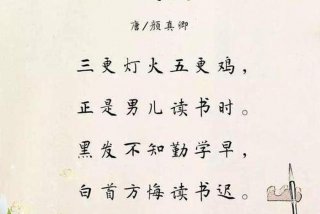 唐/颜真卿
三更灯火五更鸡，
正是男儿读书时。
黑发不知勤学早，
白首方悔读书迟。